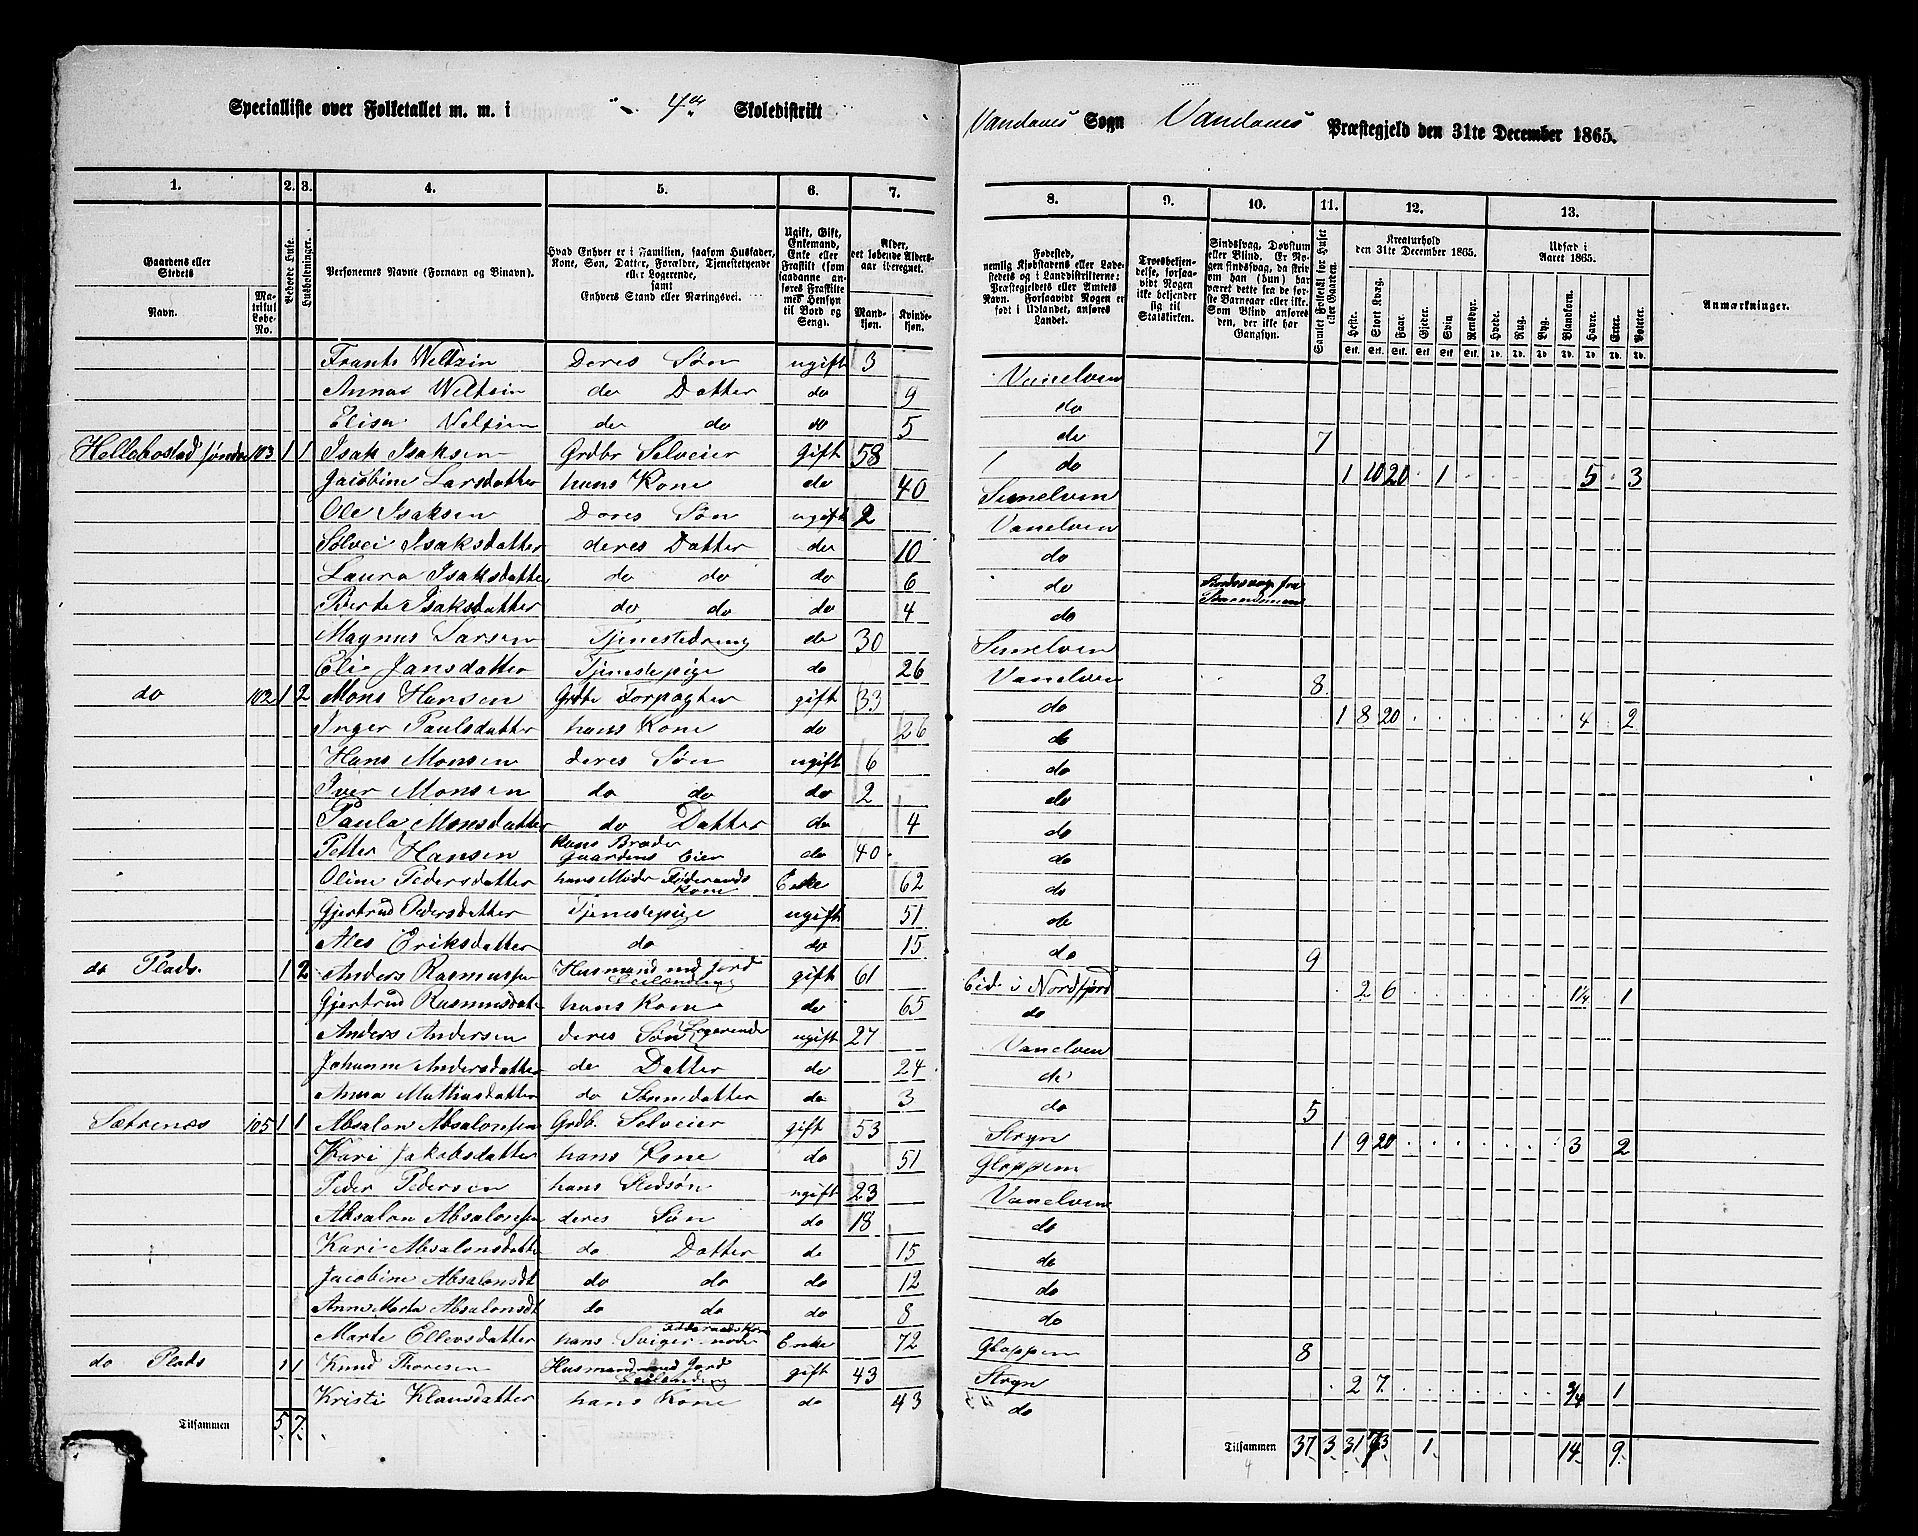 Specialliste over Folketallet m. m. i 4de Skoledistrikt
Vandaues Sogn Vandaues Præstegjeld den 31te December 1865.
1. 2. 3. 4. 5. 6. 7. 8. 9. 10. 11. 12. 13.
Gaardens eller Stedets
Navn. Matrikul Løbe-No.
Beboede Huse.
Husholdninger.
Personernes Navne (Fornavn og Binavn).
Hvad Enhver er i Familien, saasom Husfader, Kone, Søn, Datter, Forældre, Tjenestetyende eller Logerende, samt Enhvers Stand eller Næringsvei.
Ugift, Gift, Enkemand, Enke eller Fraskilt (som saadanne anføres Fraskilte med Hensyn til Bord og Seng).
Alder, det løbende Aldersaar iberegnet.
Mandkjøn. Kvindekjøn.
Fødested, nemlig Kjøbstadens eller Ladestedets og i Landdistrikterne: Præstegjeldets eller Amtets Navn. Forsaavidt Nogen er født i Udlandet, anføres Landet.
Troesbekjendelse, forsaavidt Nogen ikke bekjender sig til Statskirken.
Sindssvag, Døvstum eller Blind. Er Nogen sindssvag, da skrives om han (hun) har været dette fra de første Barneaar eller ikke. Som Blind anføres den, der ikke har Gangsyn.
Samlet Folketal for Huset eller Gaarden.
Kreaturhold den 31te December 1865.
Heste. Stort Kvæg. Faar. Gjeder. Svin. Rensdyr.
Udsæd i Aaret 1865.
Hvede. Rug. Byg. Blandkorn. Havre. Erter. Poteter.
Anmærkninger.
Frants Weltzin Deres Søn ugift 3 Vanelven
Anna Weltzin do Datter do 9 do
Elisa Veltzin do do do 5 do 7
Hellebostad søndre 103 1 1 Isak Isaksen Grdbr Selveier gift 58 do 1 10 20 1 5 3
Jacobine Larsdatter hans Kone do 40 Sunelven
Ole Isaksen Deres Søn ugift 2 Vanelven
Sølvei Isaksdatter deres Datter do 10 do
Laura Isaksdatter do do do 6 do
Berte Isaksdatter do do do 4 do
Magnus Larsen Tjenestedreng do 30 Sunelven
Elie Jansdatter Tjenestepige do 26 Vanelven 8
do 102 1 2 Mons Hansen Grdbr Forpagter gift 33 do 1 8 20 4 2
Inger Paulsdatter hans Kone do 26 do
Hans Monsen deres Søn ugift 6 do
Iver Monsen do do do 2 do
Paula Monsdatter do Datter do 4 do
Petter Hansen hans Broder Gaardens Eier do 40 do
Oline Pedersdatter hans Moder Føderaads Kone Enke 62 do
Gjertrud Pedersdatter Tjenestepige ugift 51 do
Ales Eriksdatter do do 15 do 9
do Plads 1 2 Anders Rasmussen Husmand med Jord gift 61 Eid i Nordfjord 2 6 1¼ 1
Gjertrud Rasmusdat hans Kone do 65 do
Anders Andersen deres Søn Logerende ugift 27 Vanelven
Johanne Andersdatter do Datter do 24 do
Anna Mathiasdatter do Sønnedatter do 3 do 5
Sætrenes 105 1 1 Absalon Absalonsen Grdb. Selveier gift 53 Stryn 1 9 20 3 2
Kari Jakobsdatter hans Kone do 51 Gloppen
Peder Pedersen hans Stedsøn ugift 23 Vanelven
Absalon Absalonsen deres Søn do 18 do
Kari Absalonsdatter do Datter do 15 do
Jacobine Absalonsdt do do do 12 do
Anne Marta Absalonsdt do do do 8 do
Marte Ellevsdatter hans Svigermoder Enke 72 Gloppen 8
do Plads 1 1 Knud Thoresen Husmand med Jord gift 43 Stryn 2 7 3/4 1
Kristi Klausdatter hans Kone do 43 do
Tilsammen 5 7 Tilsammen 37 3 31 73 1 14 9